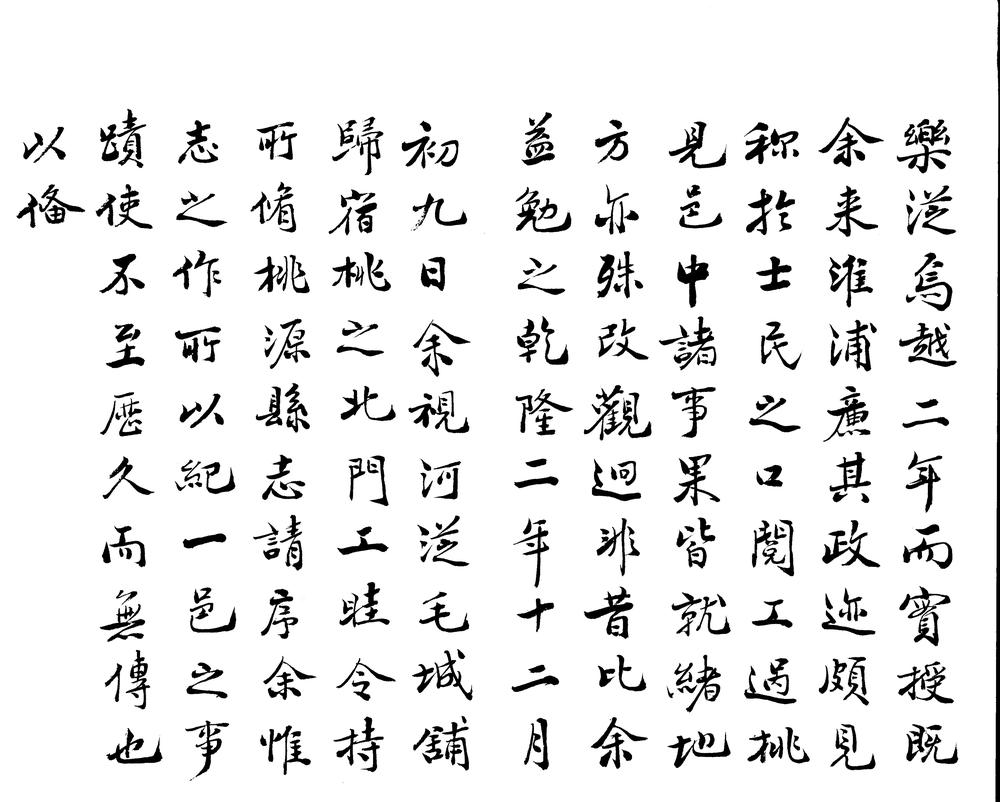 樂從焉越二年而實授既
余来淮浦廉其政迹頗見
称於士民之口閱工過桃
見邑中諸事果皆就緒地
方亦殊改觀迥非昔比余
益勉之乾隆二年十二月
初九日余視河從毛城舖
歸宿桃之北門工眭令持
所脩桃源縣志請序余惟
志之作所以紀一邑之事
蹟使不至歷久而無傳也
以俻